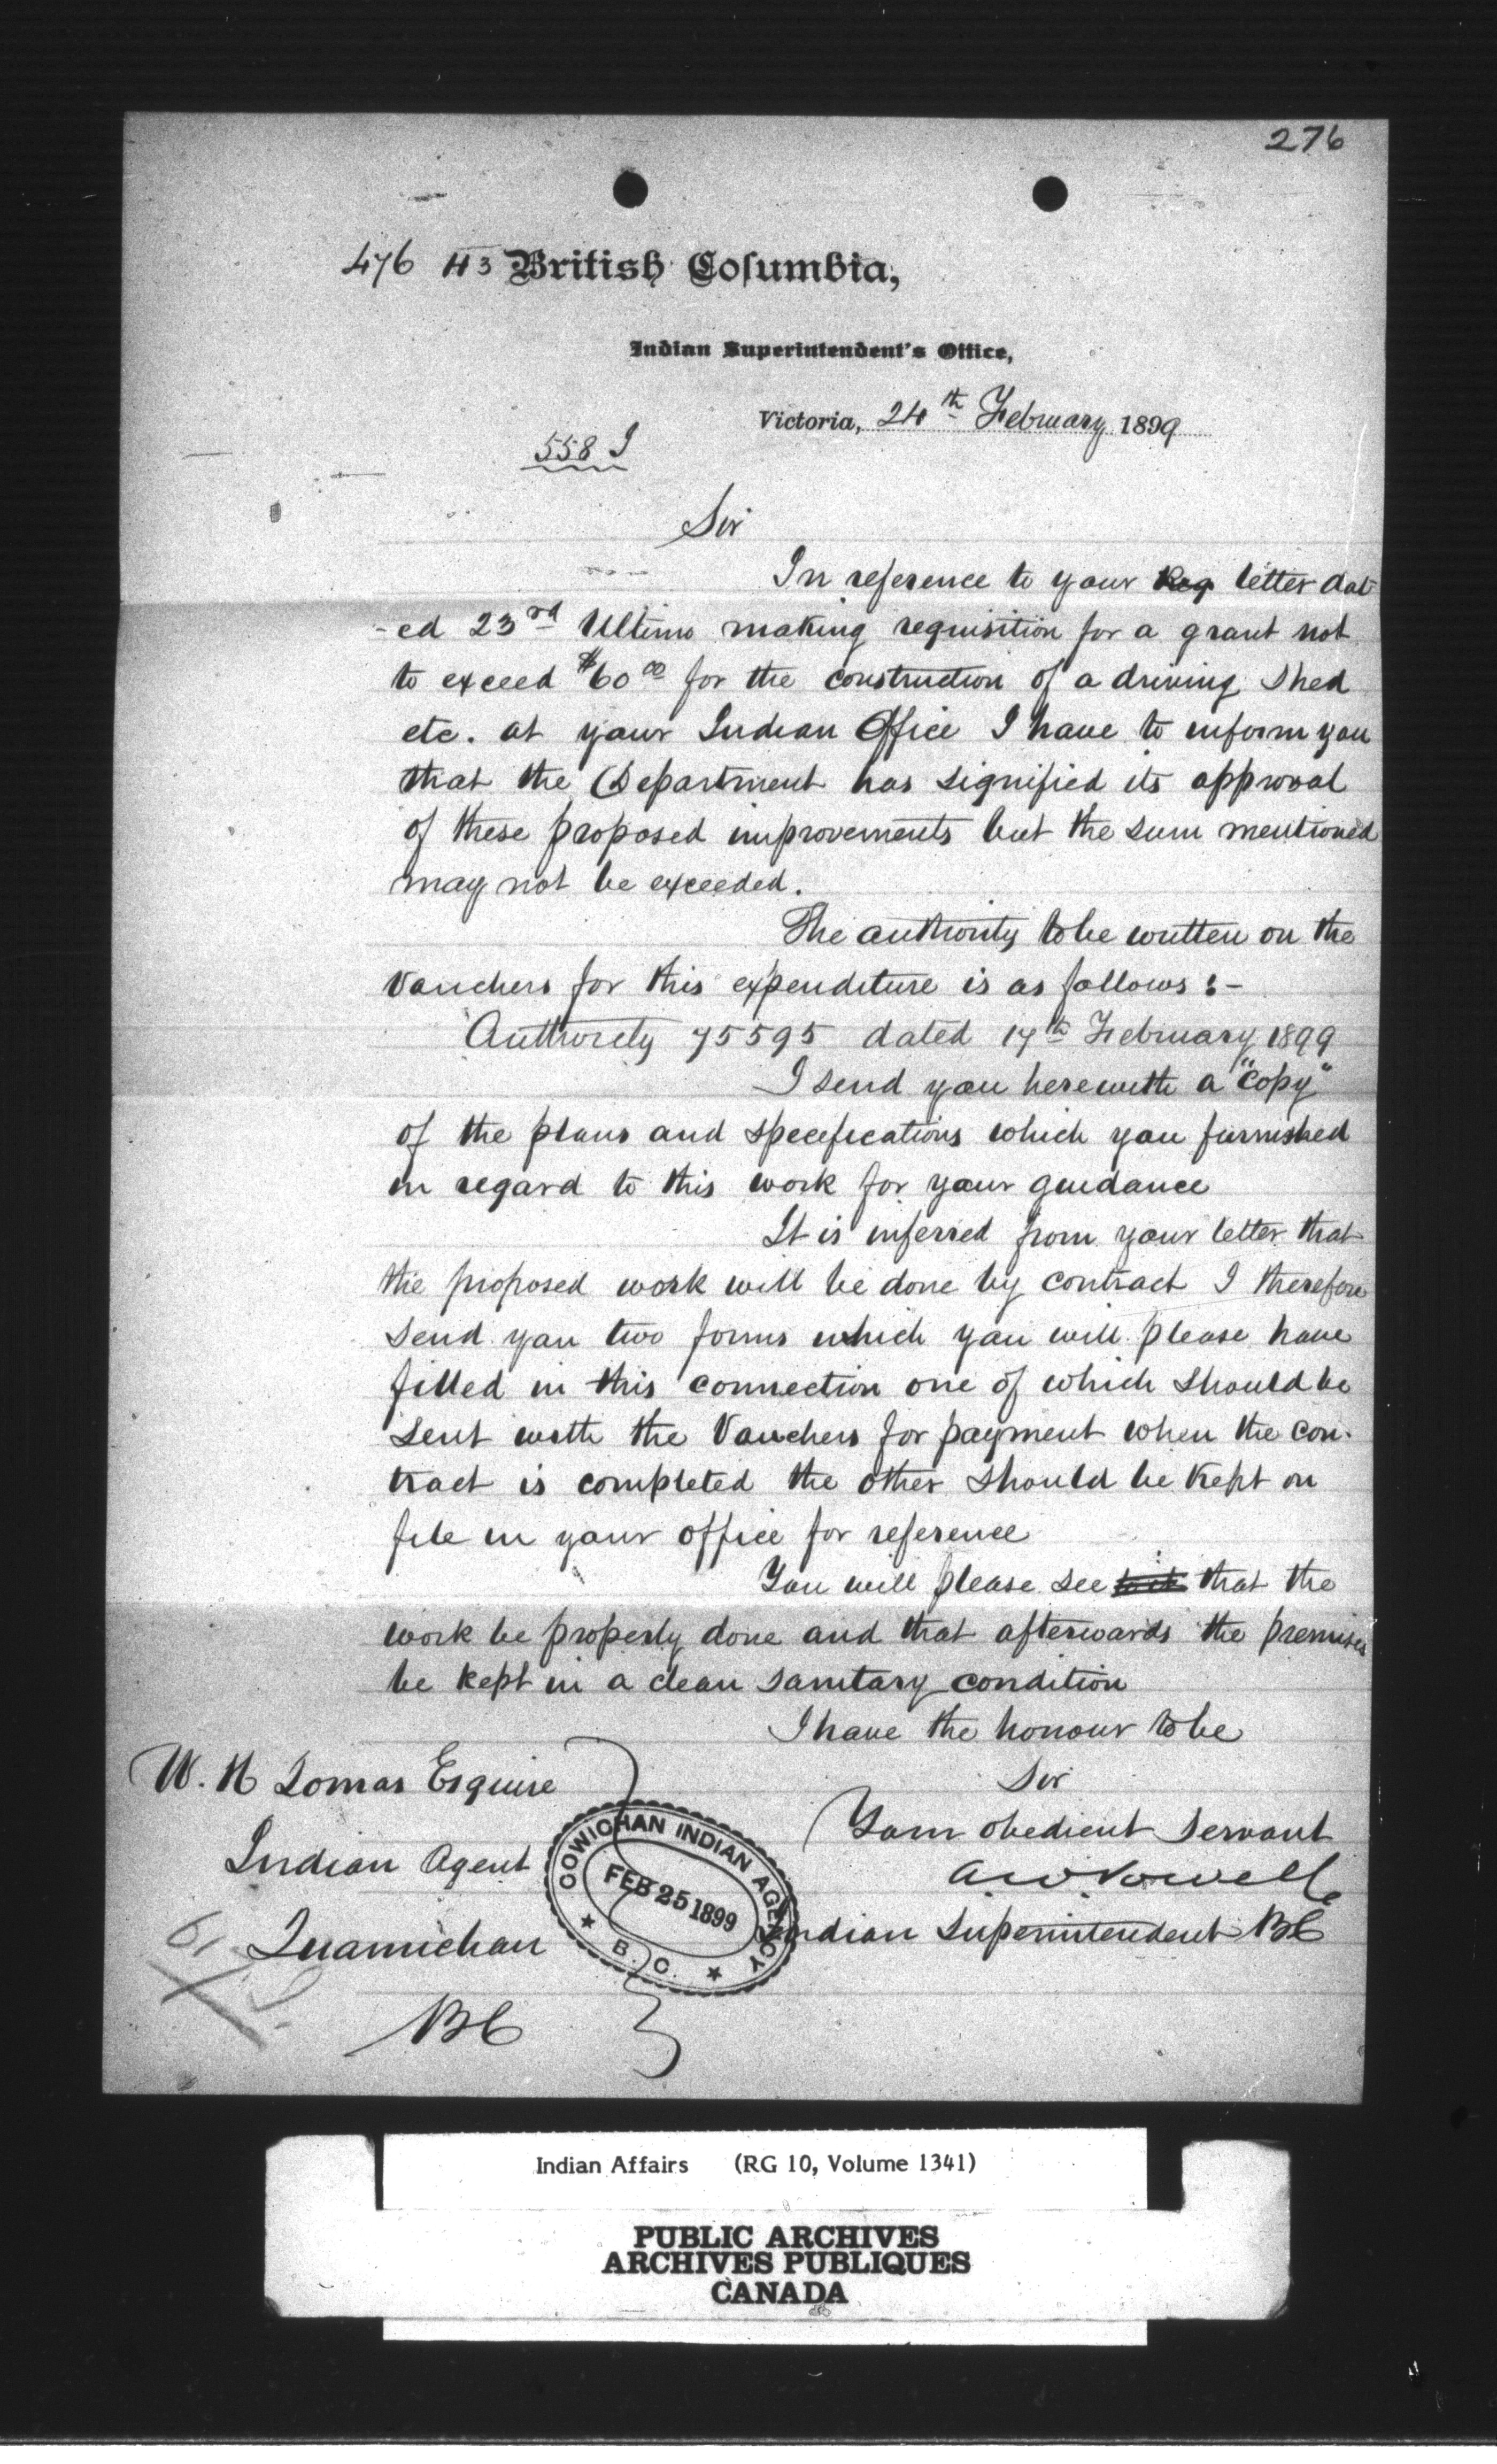 276
476 H3 British Columbia,
Indian Superintendent's Office,
Victoria, 24th February 1899
558 I
Sir
In reference to your Req letter dat
-ed 23rd Ultimo making requisition for a grant not
to exceed $60 00 for the construction of a driving shed
etc. at your Indian Office I have to inform you
that the Department has signified its approval
of these proposed improvements but the sum mentioned
may not be exceeded.
The authority to be written on the
Vouchers for this expenditure is as follows :-
Authority 75595 dated 17th February 1899
I send you herewith a "Copy"
of the plans and specifications which you furnished
in regard to this work for your guidance
It is inferred from your letter that
the proposed work will be done by contract I therefore
send you two forms which you will please have
filled in this connection one of which should be
sent with the Vouchers for payment when the con-
tract is completed the other should be kept on
file in your office for reference
You will please see to it that the
work be properly done and that afterwards the premises
be kept in a clean sanitary condition
I have the honour to be
Sir
Your obedient servant
A.W. Vowell
Indian Superintendent BC
W. H Lomas Esquire
Indian Agent
Quamichan
BC
COWICHAN INDIAN AGENCY
FEB 25 1899
B.C.
Indian Affairs (RG 10, Volume 1341)
PUBLIC ARCHIVES
ARCHIVES PUBLIQUES
CANADA